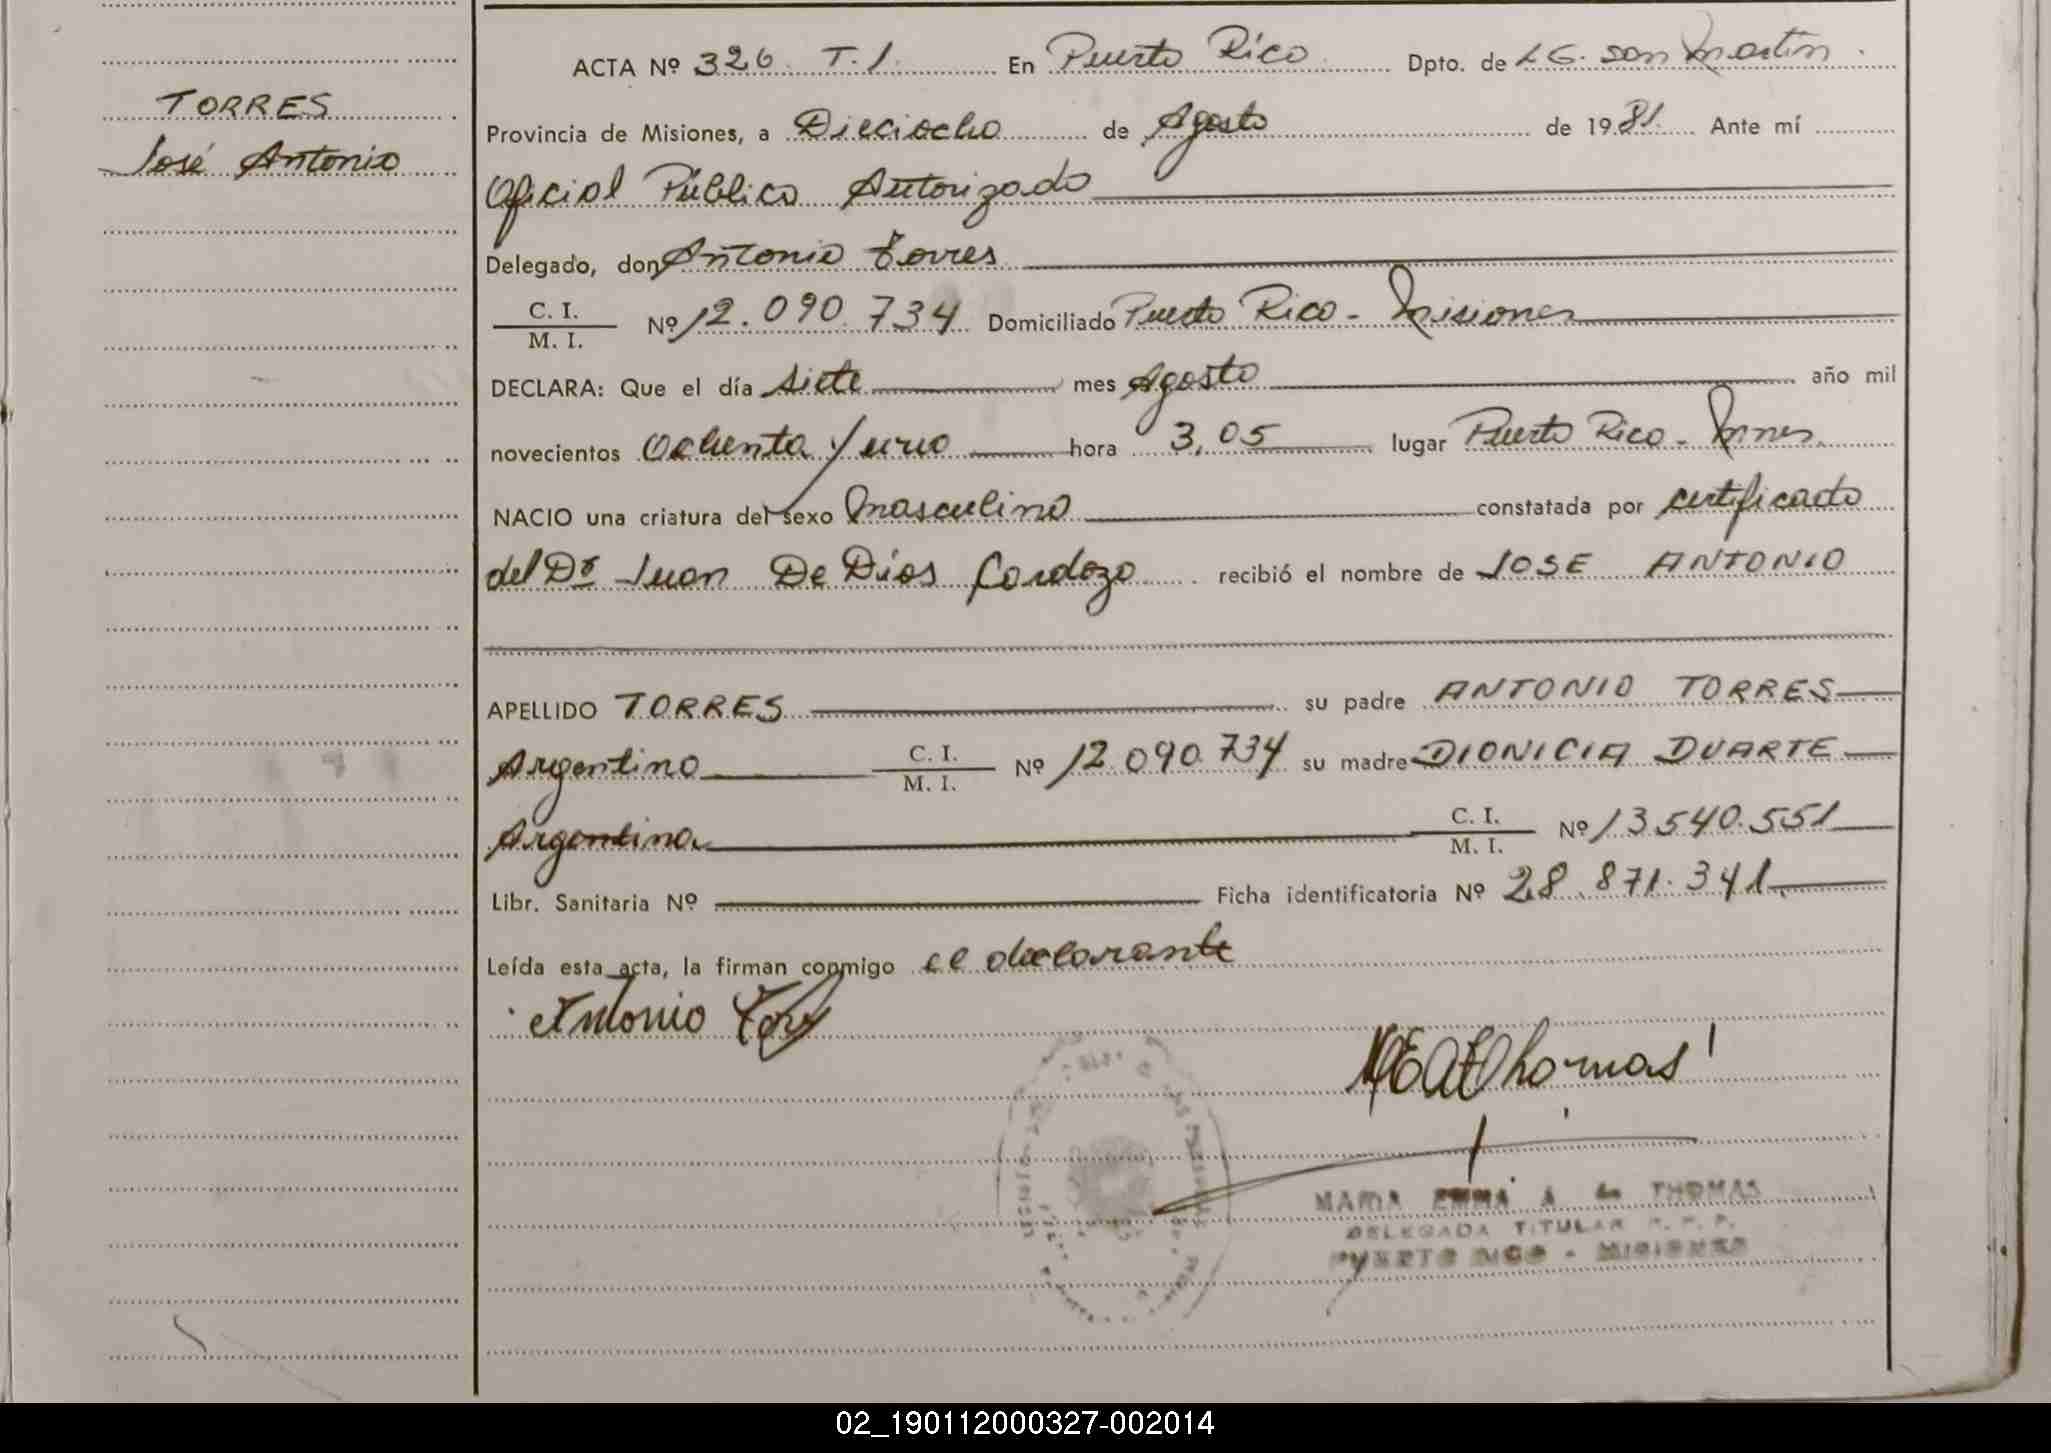 TORRES
José Antonio
ACTA Nº 326 T.1. En Puerto Rico Dpto. de LG. San Martín.
Provincia de Misiones, a Dieciocho de Agosto de 1981 Ante mí
Oficial Público Autorizado
Delegado, don Antonio Torres
C. I.
M. I. Nº 12.090.734 Domiciliado Puerto Rico - Misiones
DECLARA: Que el día siete mes Agosto año mil
novecientos Ochenta y uno hora 3,05 lugar Puerto Rico - Mnes.
NACIO una criatura del sexo Masculino constatada por certificado
del Dr Juan De Dios Cardozo recibió el nombre de JOSE ANTONIO
APELLIDO TORRES su padre ANTONIO TORRES
Argentino C. I.
M. I. Nº 12.090.734 su madre DIONICIA DUARTE
Argentina C. I.
M. I. Nº 13.540.551
Libr. Sanitaria Nº Ficha identificatoria Nº 28.871.341
Leída esta acta, la firman conmigo el declarante
Antonio Torres
MEA Thomas
MARIA EMMA A. de THOMAS
DELEGADA TITULAR R. P. P.
PUERTO RICO - MISIONES
02_190112000327-002014